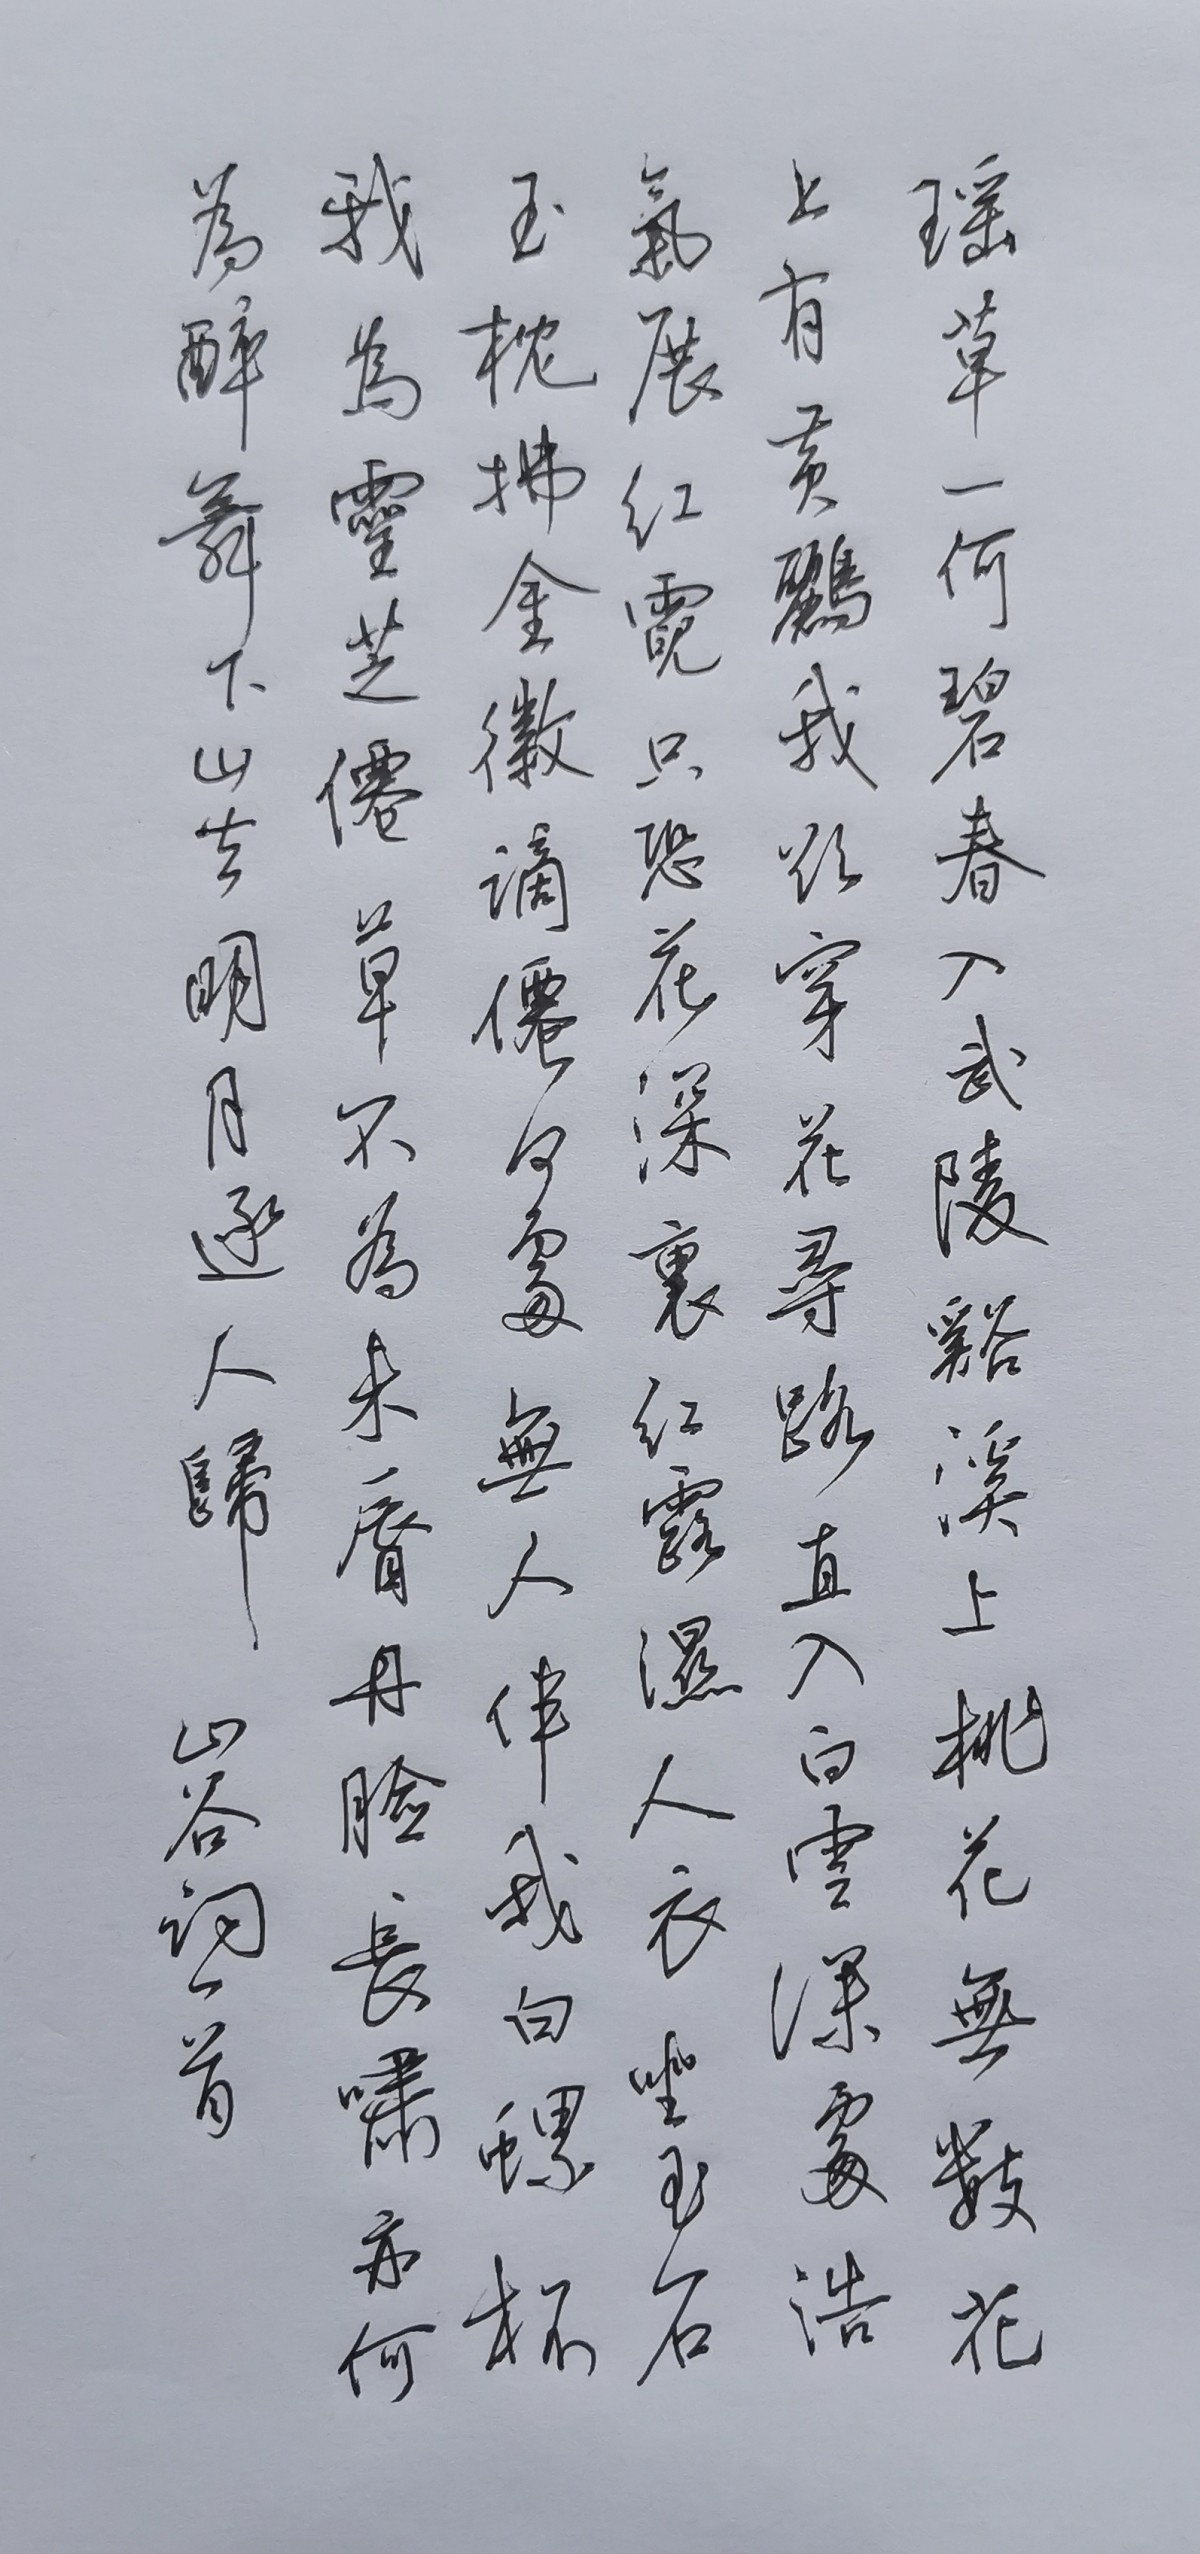 瑶草一何碧春入武陵谿溪上桃花無數花
上有黄鸝我欲穿花尋路直入白雲深處浩
氣展紅霓只恐花深裏紅露濕人衣坐玉石
玉枕拂金徽謫僊何處無人伴我白螺杯
我為靈芝僊草不為朱脣丹臉長嘯亦何
為醉舞下山去明月逐人歸
山谷詞一首